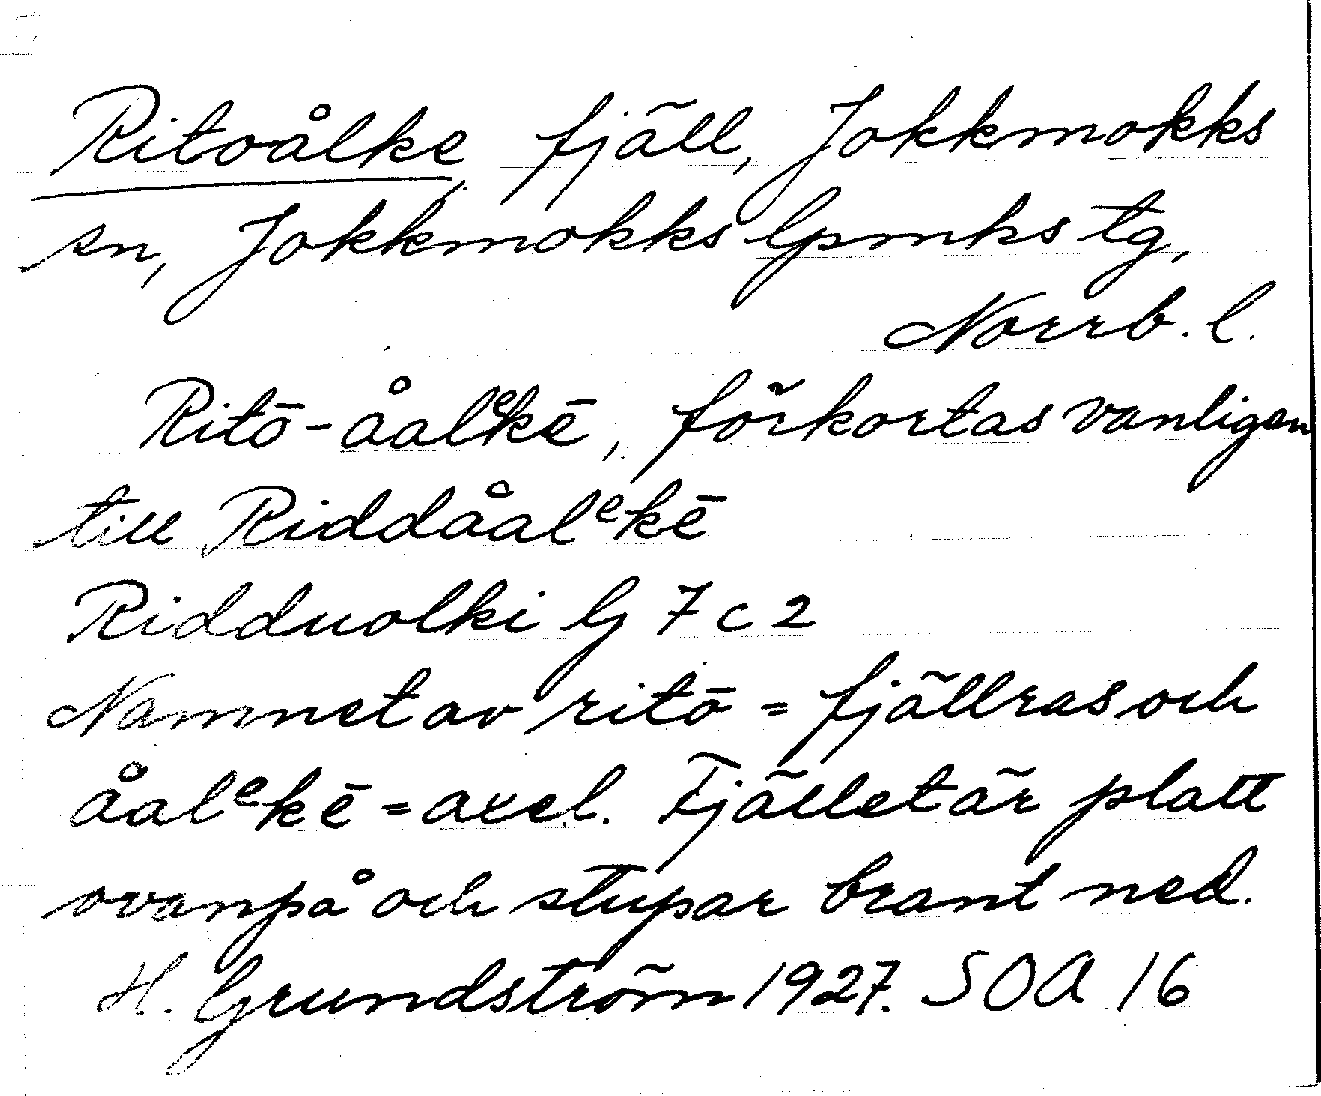 Ritoålke fjäll, Jokkmokks
sn, Jokkmokks lpmks tg,
Norrb. l.
Ritō-åalᵉkē, förkortas vanligen
till Riddåalᵉkē
Ridduolki G 7 c 2
Namnet av ritō = fjällras och
åalᵉkē = axel. Fjället är platt
ovanpå och stupar brant ned.
H. Grundström 1927. SOA 16